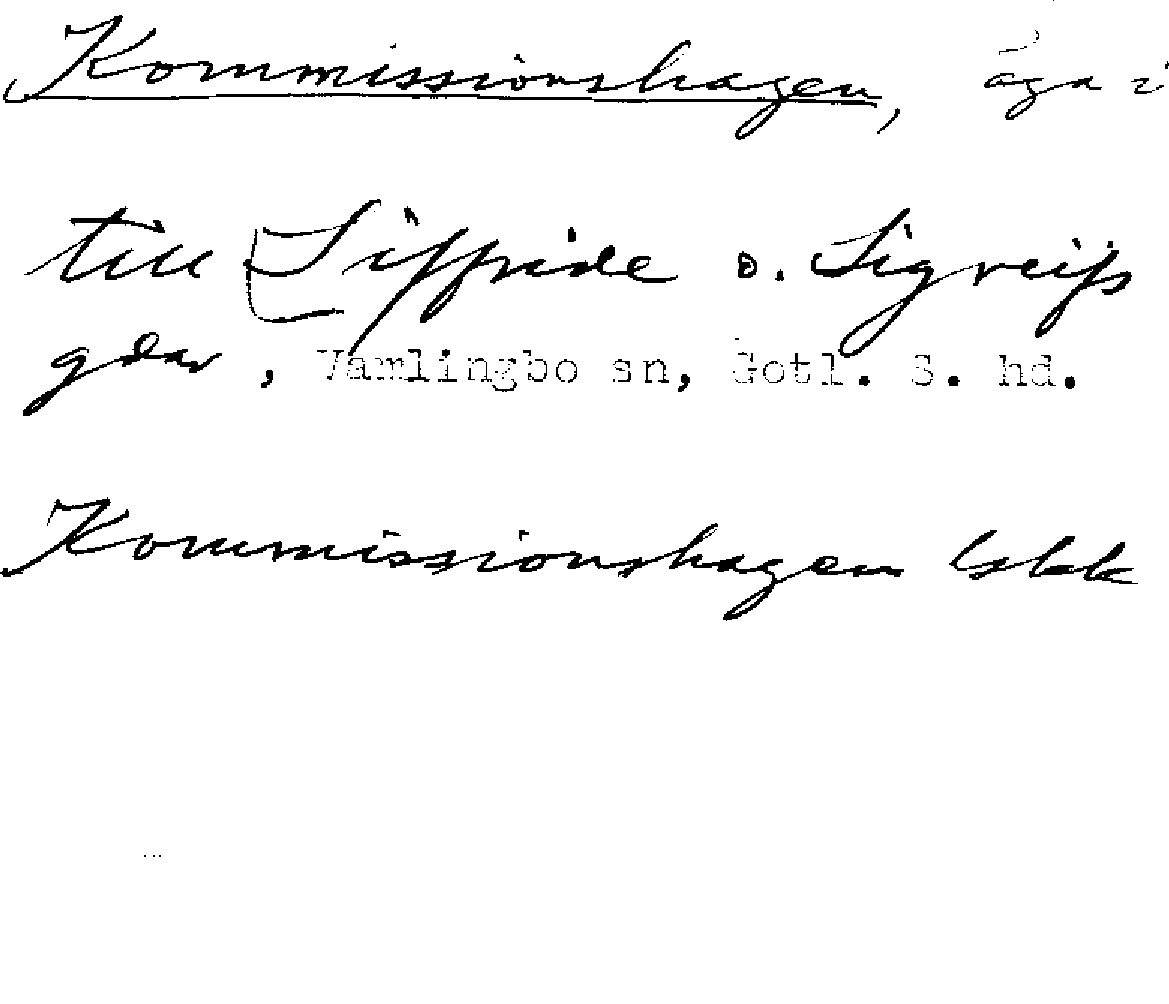 Kommissionshagen, äga i
till Siffride o. Sigreifs
gdar, Vamlingbo sn, Gotl. S. hd.
Kommissionshagen lskk